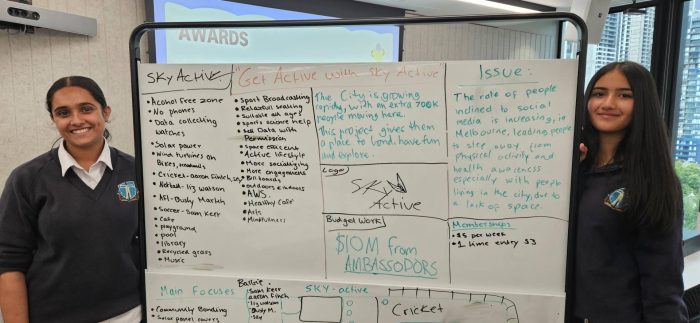 AWARDS
SKY ACTIVE
"Get Active with Sky Active
• Alcohol Free zone
• No phones
• Data collecting
watches
• Solar power
• Wind turbines on
Bikes,
• Cricket - aaron finch,
• Netball - Liz Watson
• Afl - Busty Martin
• Soccer - Sam Kerr
• Cafe
• playground
• pool
• library
• Recycled grass
• Music
• Sport Broadcasting
• Relaxful seating
• Suitable all ages
• Sports science help
• Sell Data with
Permission
• space efficent
• Active lifestyle
• More socialising
• More engagement
• Bill boards
• outdoors & indoors
• AWS
• Healthy Cafe
• Arts
• Mindfulness
The City is growing
rapidly, with an extra 700K
people moving here.
This project gives them
a place to bond, have fun
and explore.
Logo
SKY
ACTIVE
Budget Work
$10M from
AMBASSODORS
Issue:
The rate of people
inclined to social
media is increasing, in
Melbourne, leading people
to step away from
physical activity and
health awareness
especially with people
living in the city, due to
a lack of space.
Memberships
• $5 per week
• 1 time entry $3
Main Focuses
• Community Bonding
• Solar panel covers
Sam Kerr
aaron Finch
liz watson
Busty M.
SKY-active
Cricket